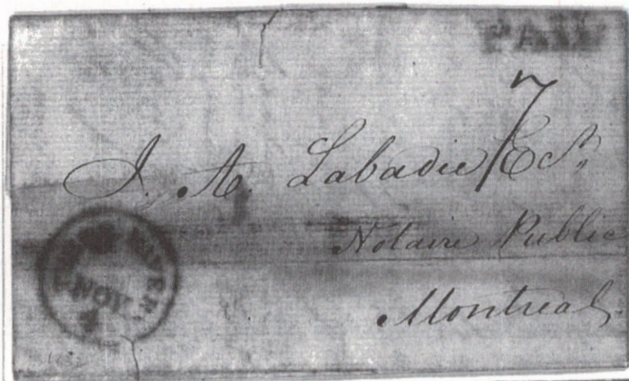 PAID
7
J. A. Labadie Esr.
Notaire Public
Montreal.
RIVERS
NOV.
4